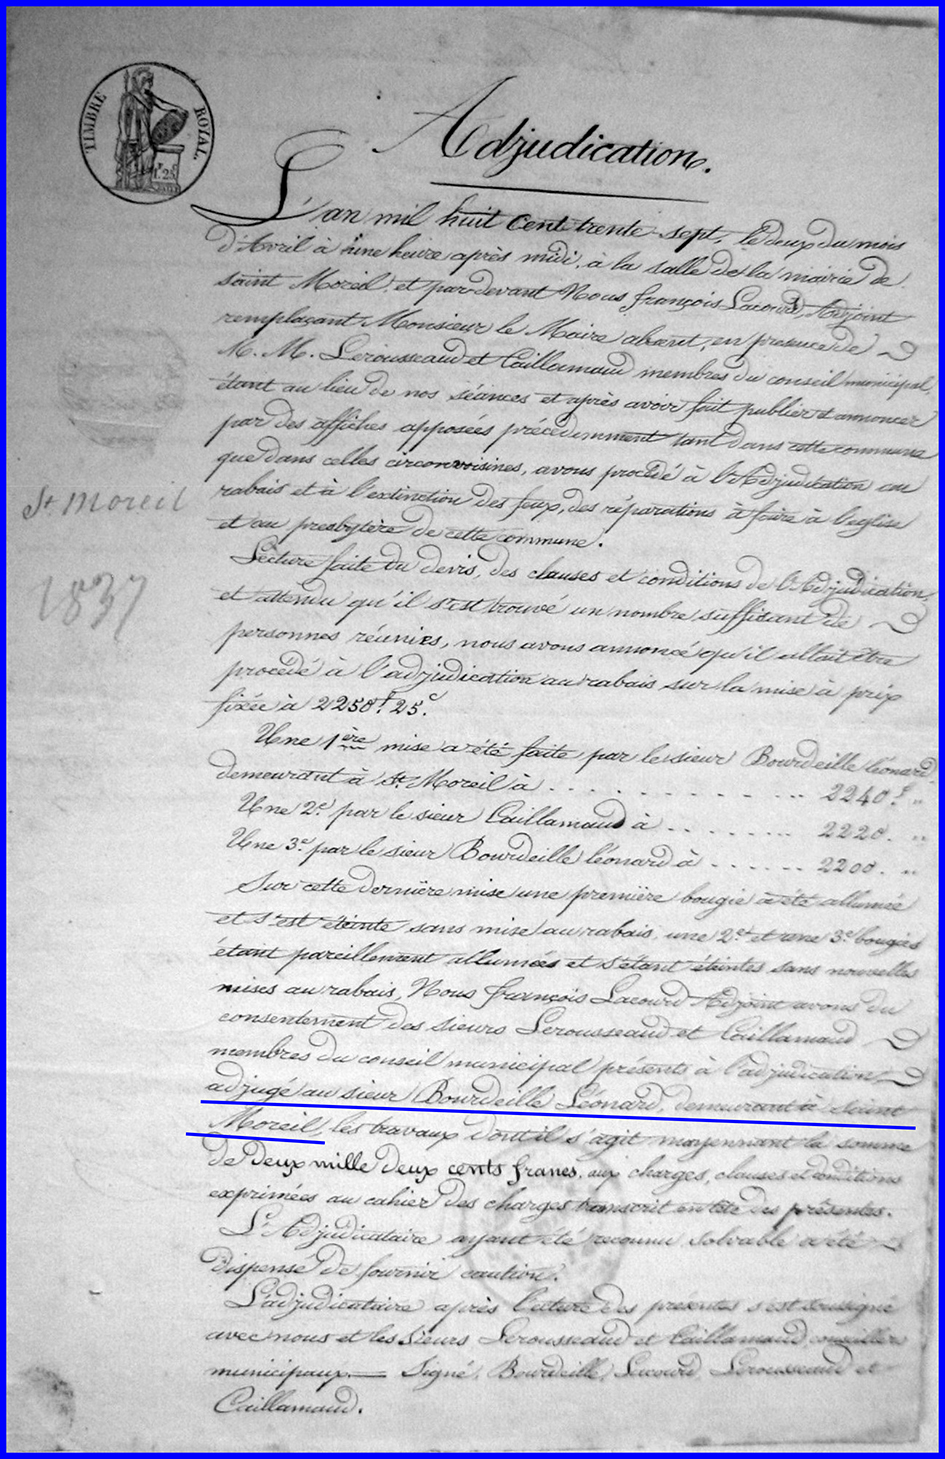 TIMBRE ROYAL.
1f. 25c
Adjudication.
L'an mil huit cent trente-sept, le deux du mois
d'Avril à une heure après midi, à la salle de la mairie de
saint Moreil et par-devant Nous françois Lacourd, Adjoint
remplaçant Monsieur le Maire absent, en présence de
M. M. Lerousseaud et Caillamaud membres du conseil municipal,
étant au lieu de nos séances et après avoir fait publier et annoncer
par des affiches apposées précédemment tant dans cette commune
que dans celles circonvoisines, avons procédé à l'Adjudication au
rabais et à l'extinction des feux, des réparations à faire à l'église
et au presbytère de cette commune.
St. Moreil
1837
Lecture faite du devis, des clauses et conditions de l'Adjudication,
et attendu qu'il s'est trouvé un nombre suffisant de
personnes réunies, nous avons annoncé qu'il allait être
procédé à l'adjudication au rabais sur la mise à prix
fixée à 2250f. 25c.
Une 1ère mise a été faite par le sieur Bourdeille léonard
demeurant à St. Moreil à . . . . . . . . . . . 2240f. "
Une 2e. par le sieur Caillamaud à . . . . . . . 2220. "
Une 3e. par le sieur Bourdeille léonard à . . . . . . 2200. "
Sur cette dernière mise une première bougie a été allumée
et s'est éteinte sans mise au rabais, une 2e. et une 3e. bougies
étant pareillement allumées et s'étant éteintes sans nouvelles
mises au rabais, Nous françois Lacourd Adjoint avons du
consentement des sieurs Lerousseaud et Caillamaud
membres du conseil municipal présents à l'adjudication
adjugé au sieur Bourdeille Léonard, demeurant à Saint
Moreil, les travaux dont il s'agit moyennant la somme
de deux mille deux cents francs, aux charges, clauses et conditions
exprimées au cahier des charges transcrit en tête des présentes.
L'Adjudicataire ayant été reconnu solvable a été
dispensé de fournir caution.
L'adjudicataire après lecture des présentes s'est soussigné
avec nous et les Sieurs Lerousseaud et Caillamaud conseillers
municipaux. Signé, Bourdeille, Lacourd, Lerousseaud et
Caillamaud.